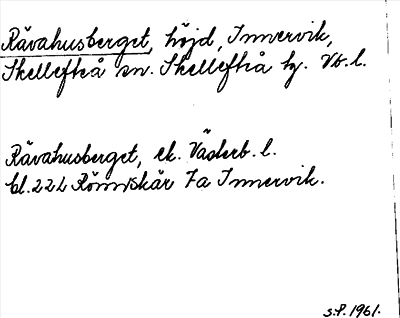 Rävahusberget, höjd, Innervik,
Skellefteå sn. Skellefteå tg. Vb. l.
Rävahusberget, ek. Västerb. l.
bl. 22 L Rönnskär 7a Innervik.
S.P. 1961.